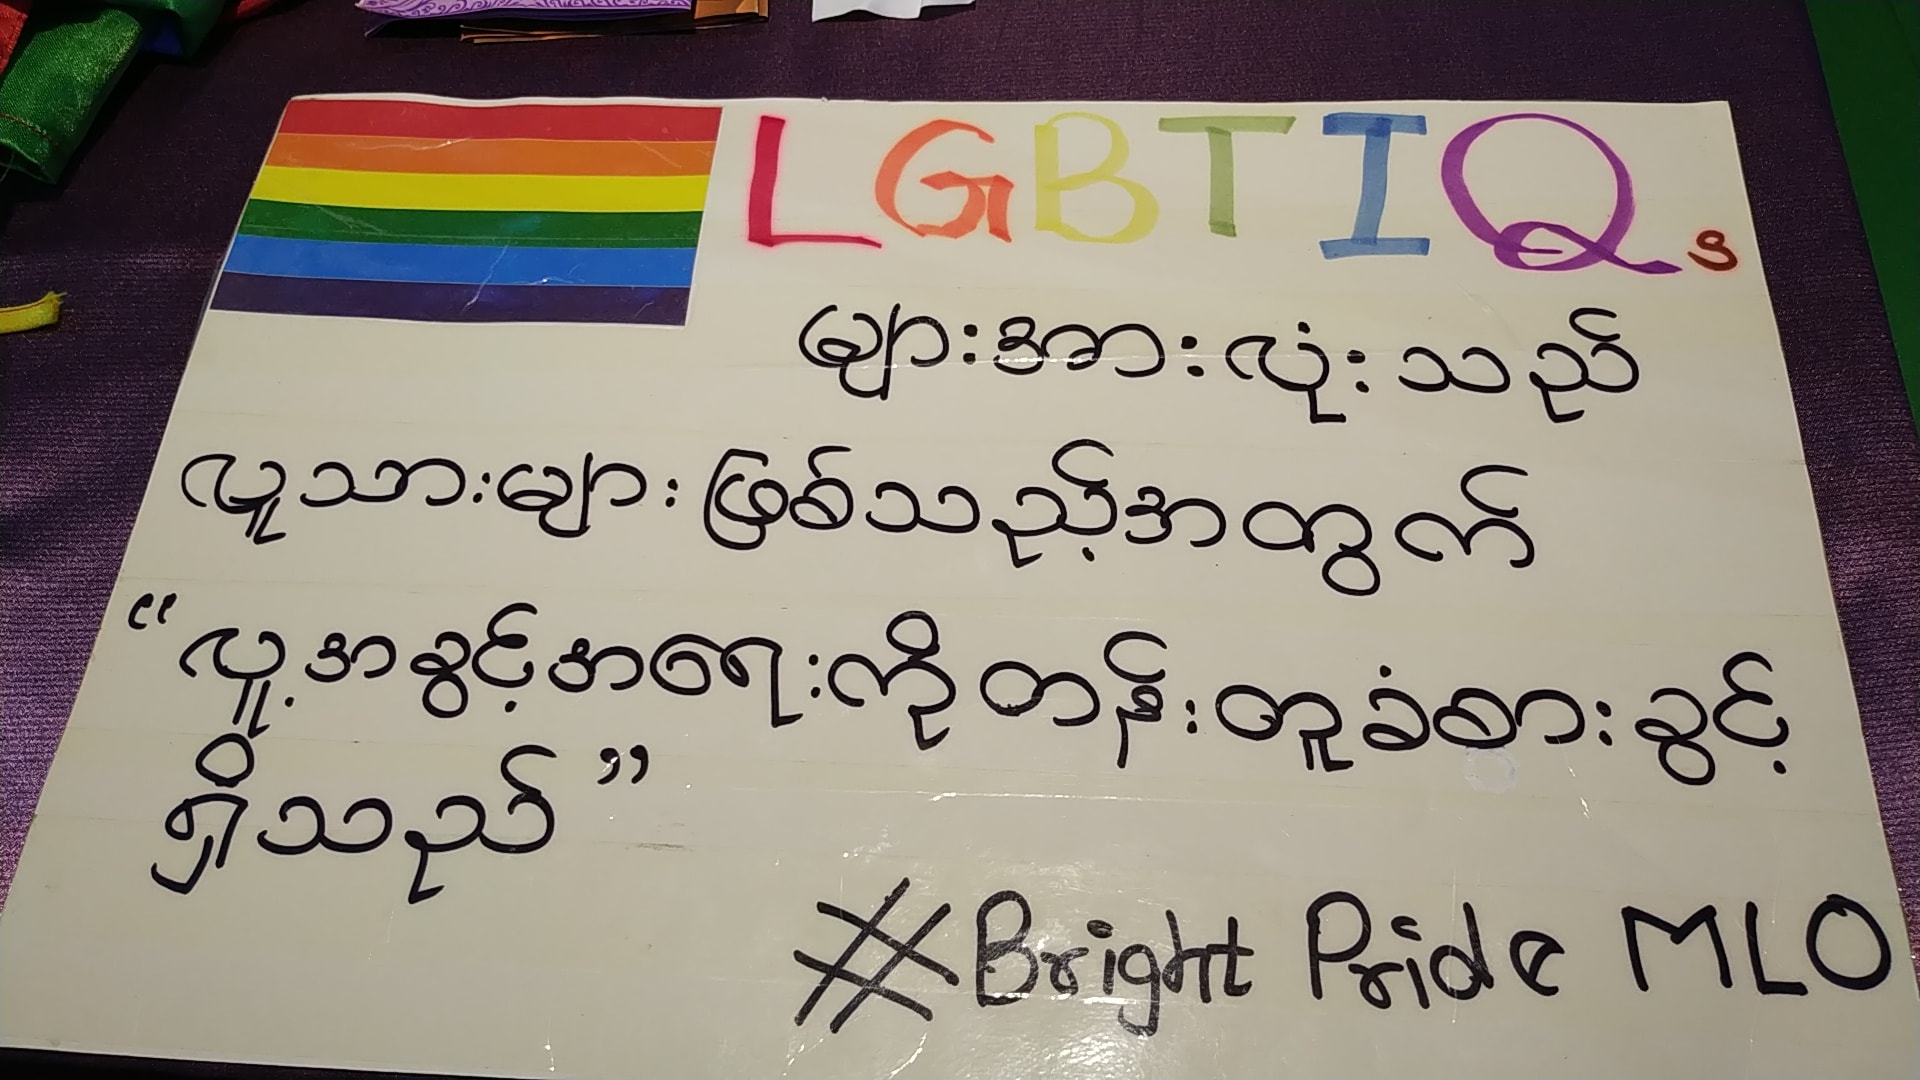 LGBTIQs
များအားလုံးသည်
လူသားများဖြစ်သည့်အတွက်
“လူ့အခွင့်အရေးကိုတန်းတူခံစားခွင့်
ရှိသည်”
#Bright Pride MLO